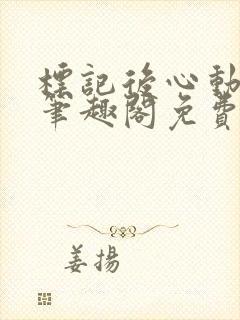 標記後心動
筆趣閣免費
姜揚